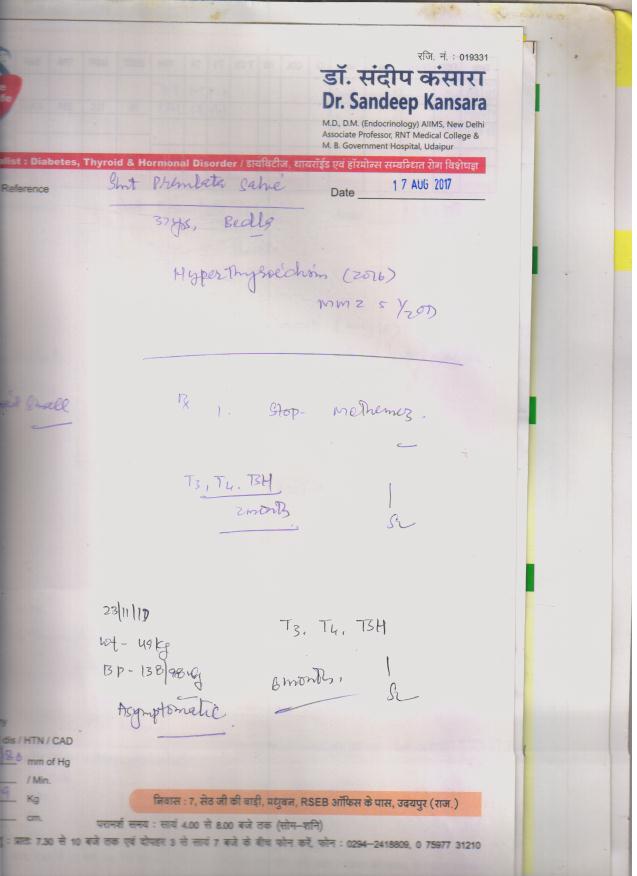 रजि. नं. : 019331
डॉ. संदीप कंसारा
Dr. Sandeep Kansara
M.D., D.M. (Endocrinology) AIIMS, New Delhi
Associate Professor, RNT Medical College &
M. B. Government Hospital, Udaipur
alist : Diabetes, Thyroid & Hormonal Disorder / डायबिटीज, थायरॉईड एवं हॉरमोन्स सम्बन्धित रोग विशेषज्ञ
Reference
Smt Premlata
Date 17 AUG 2017
37yrs, Bedla
(2016)
MMZ 5 1/2 OD
Small
Rx 1. Stop-
T3, T4, TSH
2 months
23/11/17
Wt - 49 kg
T3, T4, TSH
BP - 138/
6 months.
Asymptomatic
dis / HTN / CAD
mm of Hg
/ Min.
Kg
cm.
निवास : 7, सेठ जी की बाड़ी, मधुबन, RSEB ऑफिस के पास, उदयपुर (राज.)
परामर्श समय : सायं 4.00 से 8.00 बजे तक (सोम-शनि)
: प्रातः 7.30 से 10 बजे तक एवं दोपहर 3 से सायं 7 बजे के बीच फोन करें, फोन : 0294-2418809, 0 75977 31210